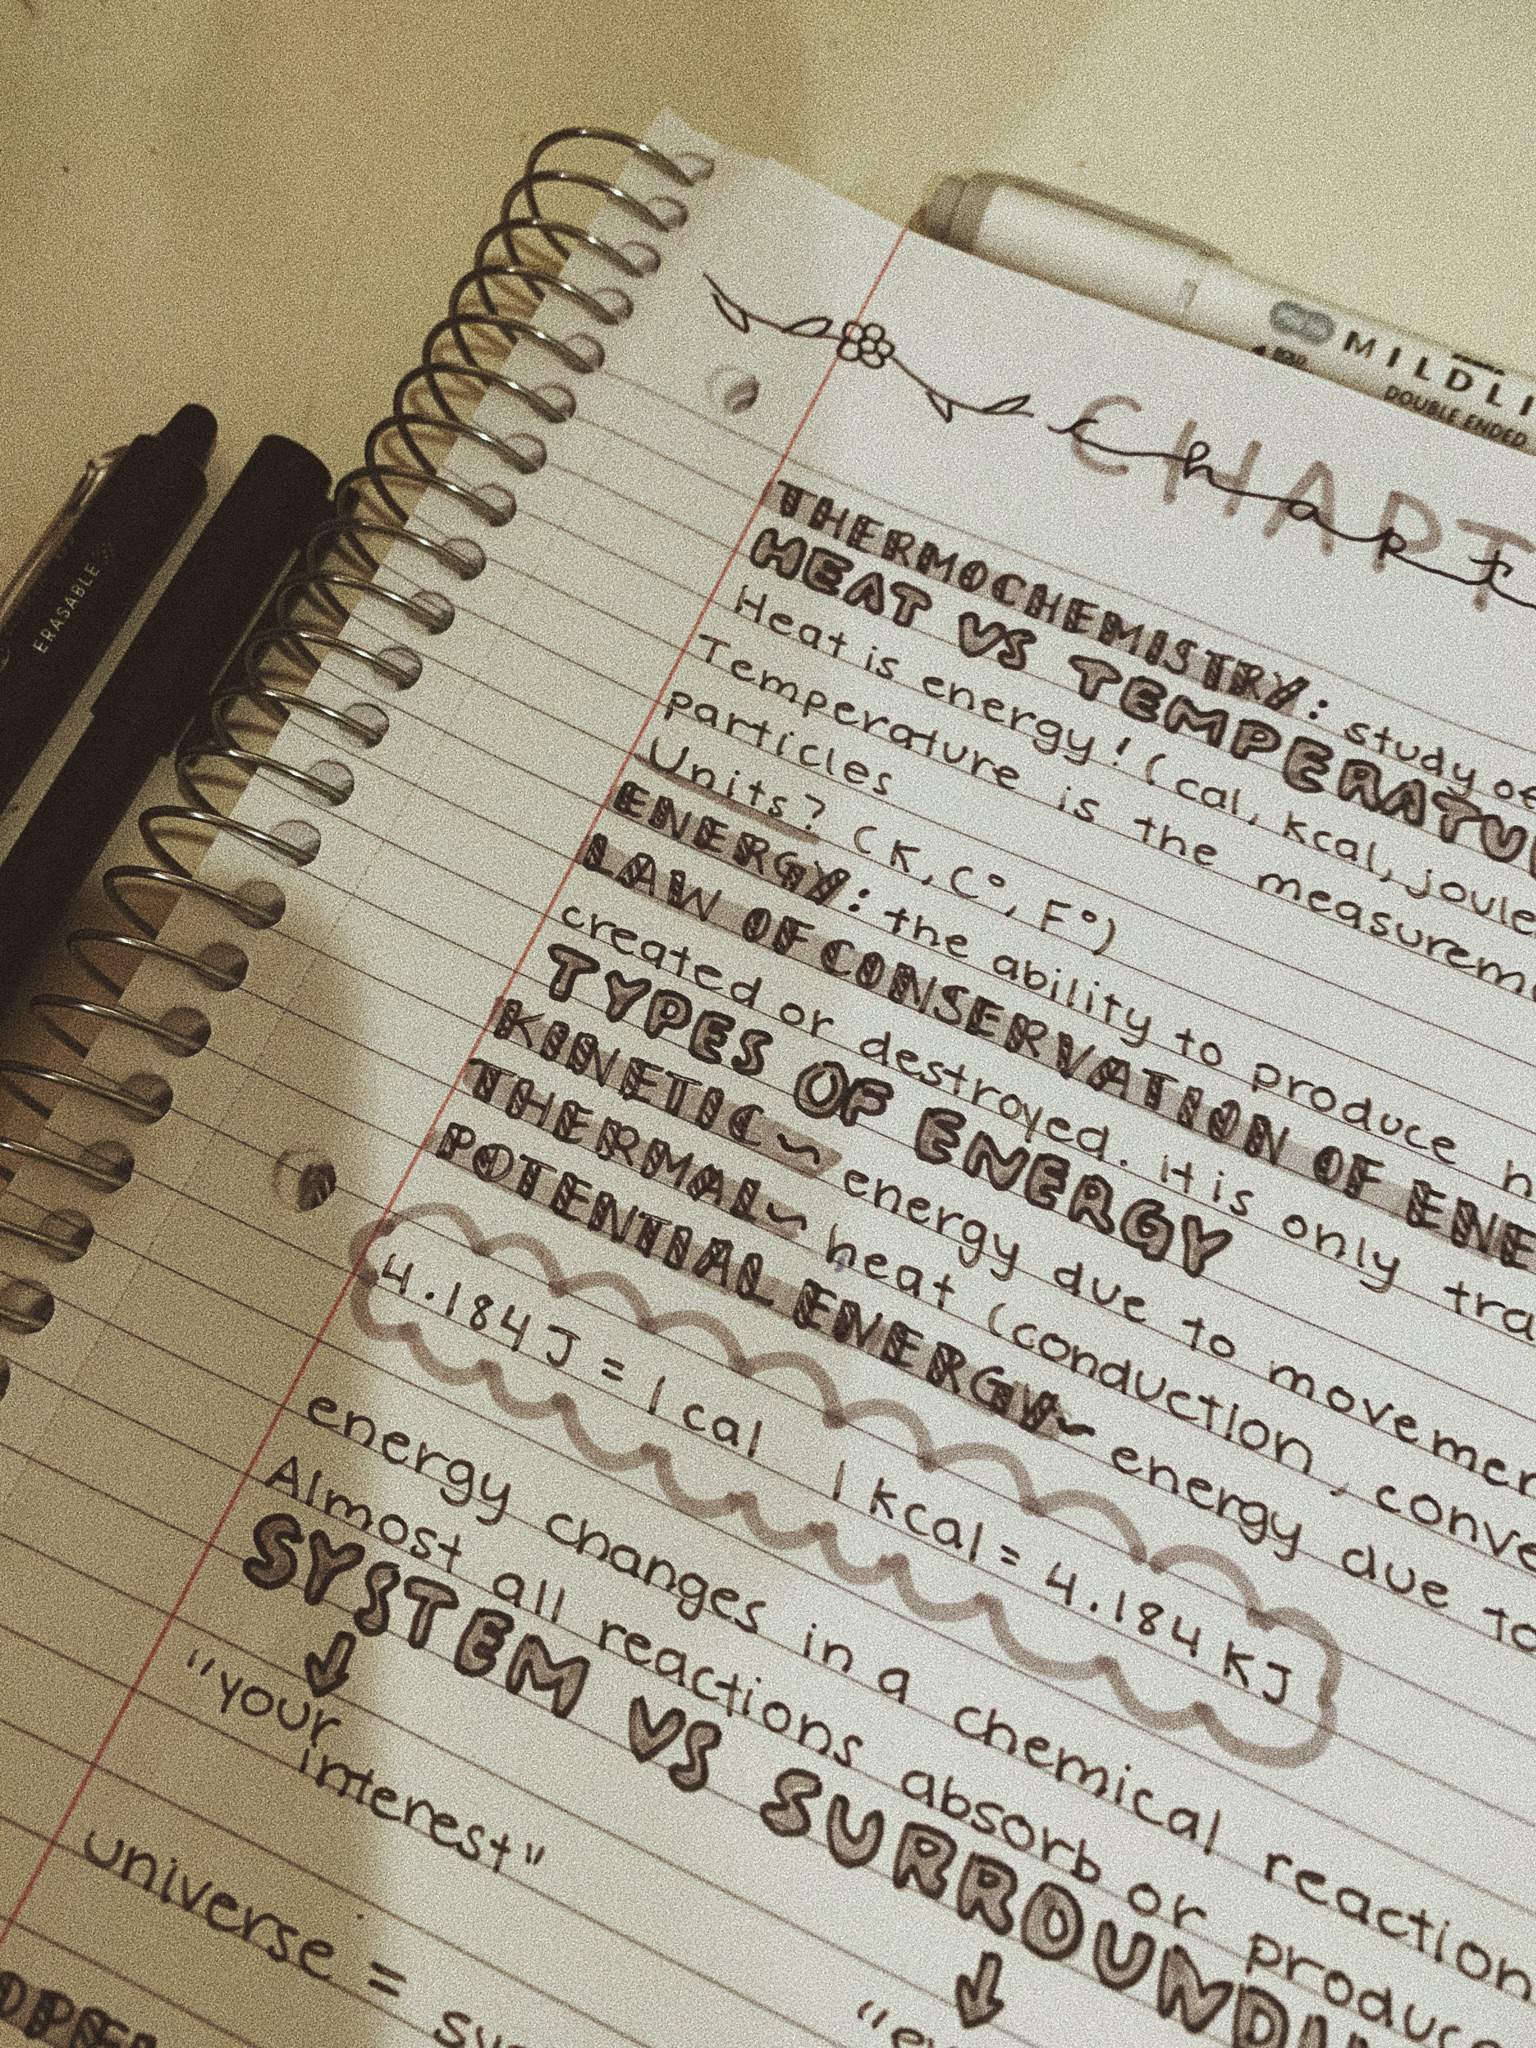 MILDLI
BOLD
DOUBLE ENDED
ERASABLE
CHAPT
chapt
THERMOCHEMISTRY: study of
HEAT VS TEMPERATU
Heat is energy! (cal, kcal, joule
Temperature is the measurem
particles
Units? (K, C°, F°)
ENERGY: the ability to produce h
LAW OF CONSERVATION OF ENE
created or destroyed. it is only tra
TYPES OF ENERGY
KINETIC~ energy due to movemen
THERMAL~ heat (conduction, conve
POTENTIAL ENERGY~ energy due to
4.184 J = 1 cal 1 kcal = 4.184 KJ
energy changes in a chemical reaction
Almost all reactions absorb or produce
SYSTEM VS SURROUNDI
"your
interest"
"ev
universe = sys
OPE